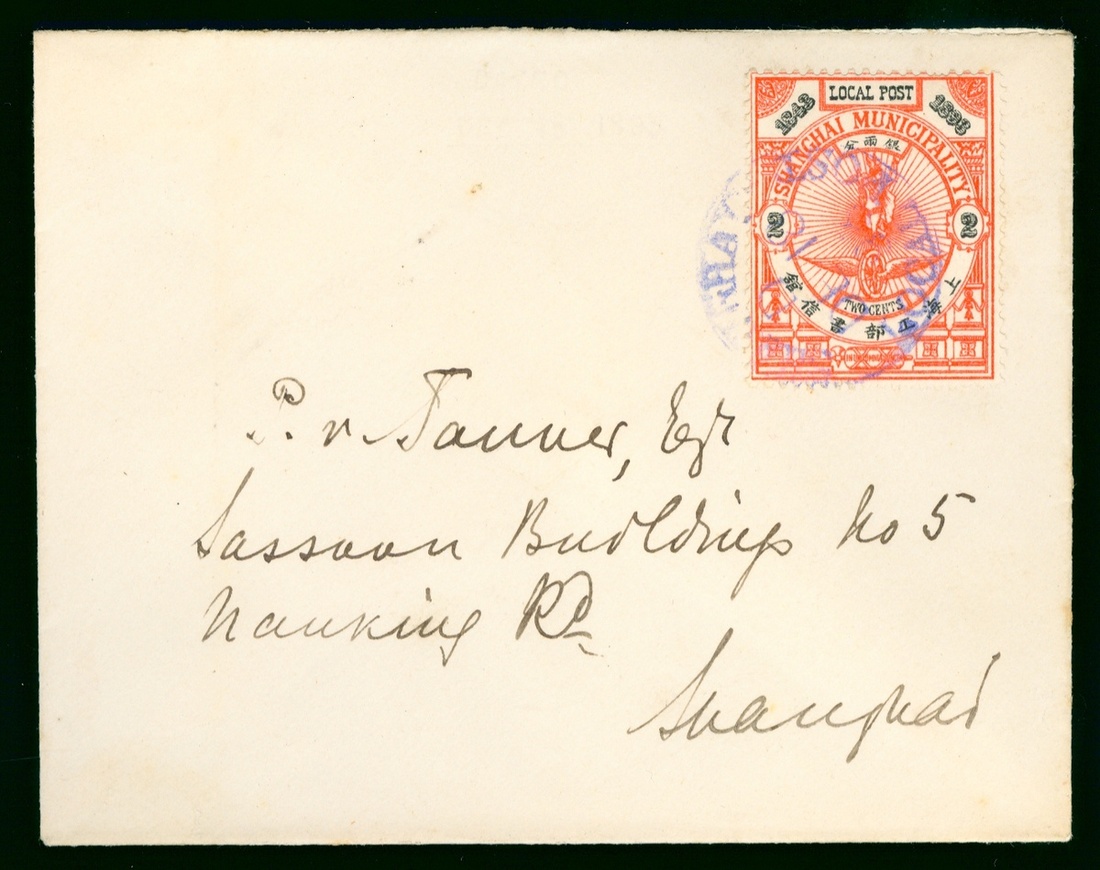 LOCAL POST
1843 1893
SHANGHAI MUNICIPALITY
銀兩分
2 2
TWO CENTS
上海工部書信館
LOCAL
P. v. Tanner, Esqr
Sassoon Buildings No 5
Nanking Rd
Shanghai